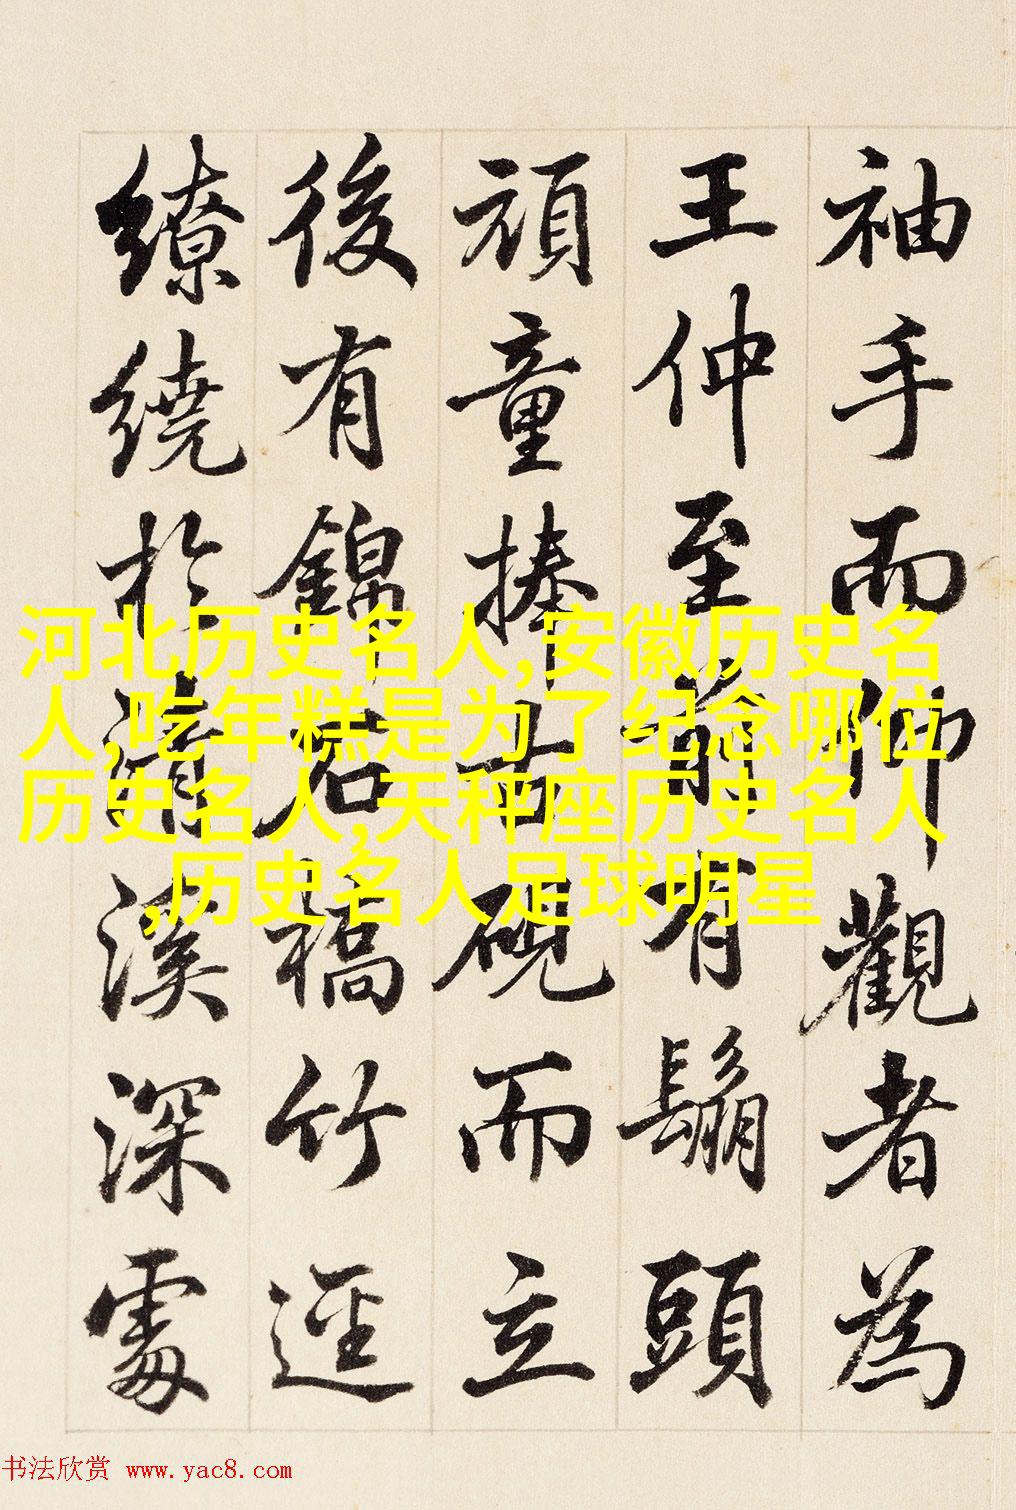 袖手而仰觀者為
王仲至前有鬅頭
頑童捧古硯而立
後有錦石橋竹逕
繚繞於清溪深處
河北历史名人,安徽历史名
人,吃年糕是为了纪念哪位
历史名人,天秤座历史名人
,历史名人足球明星
书法欣赏 www.yac8.com